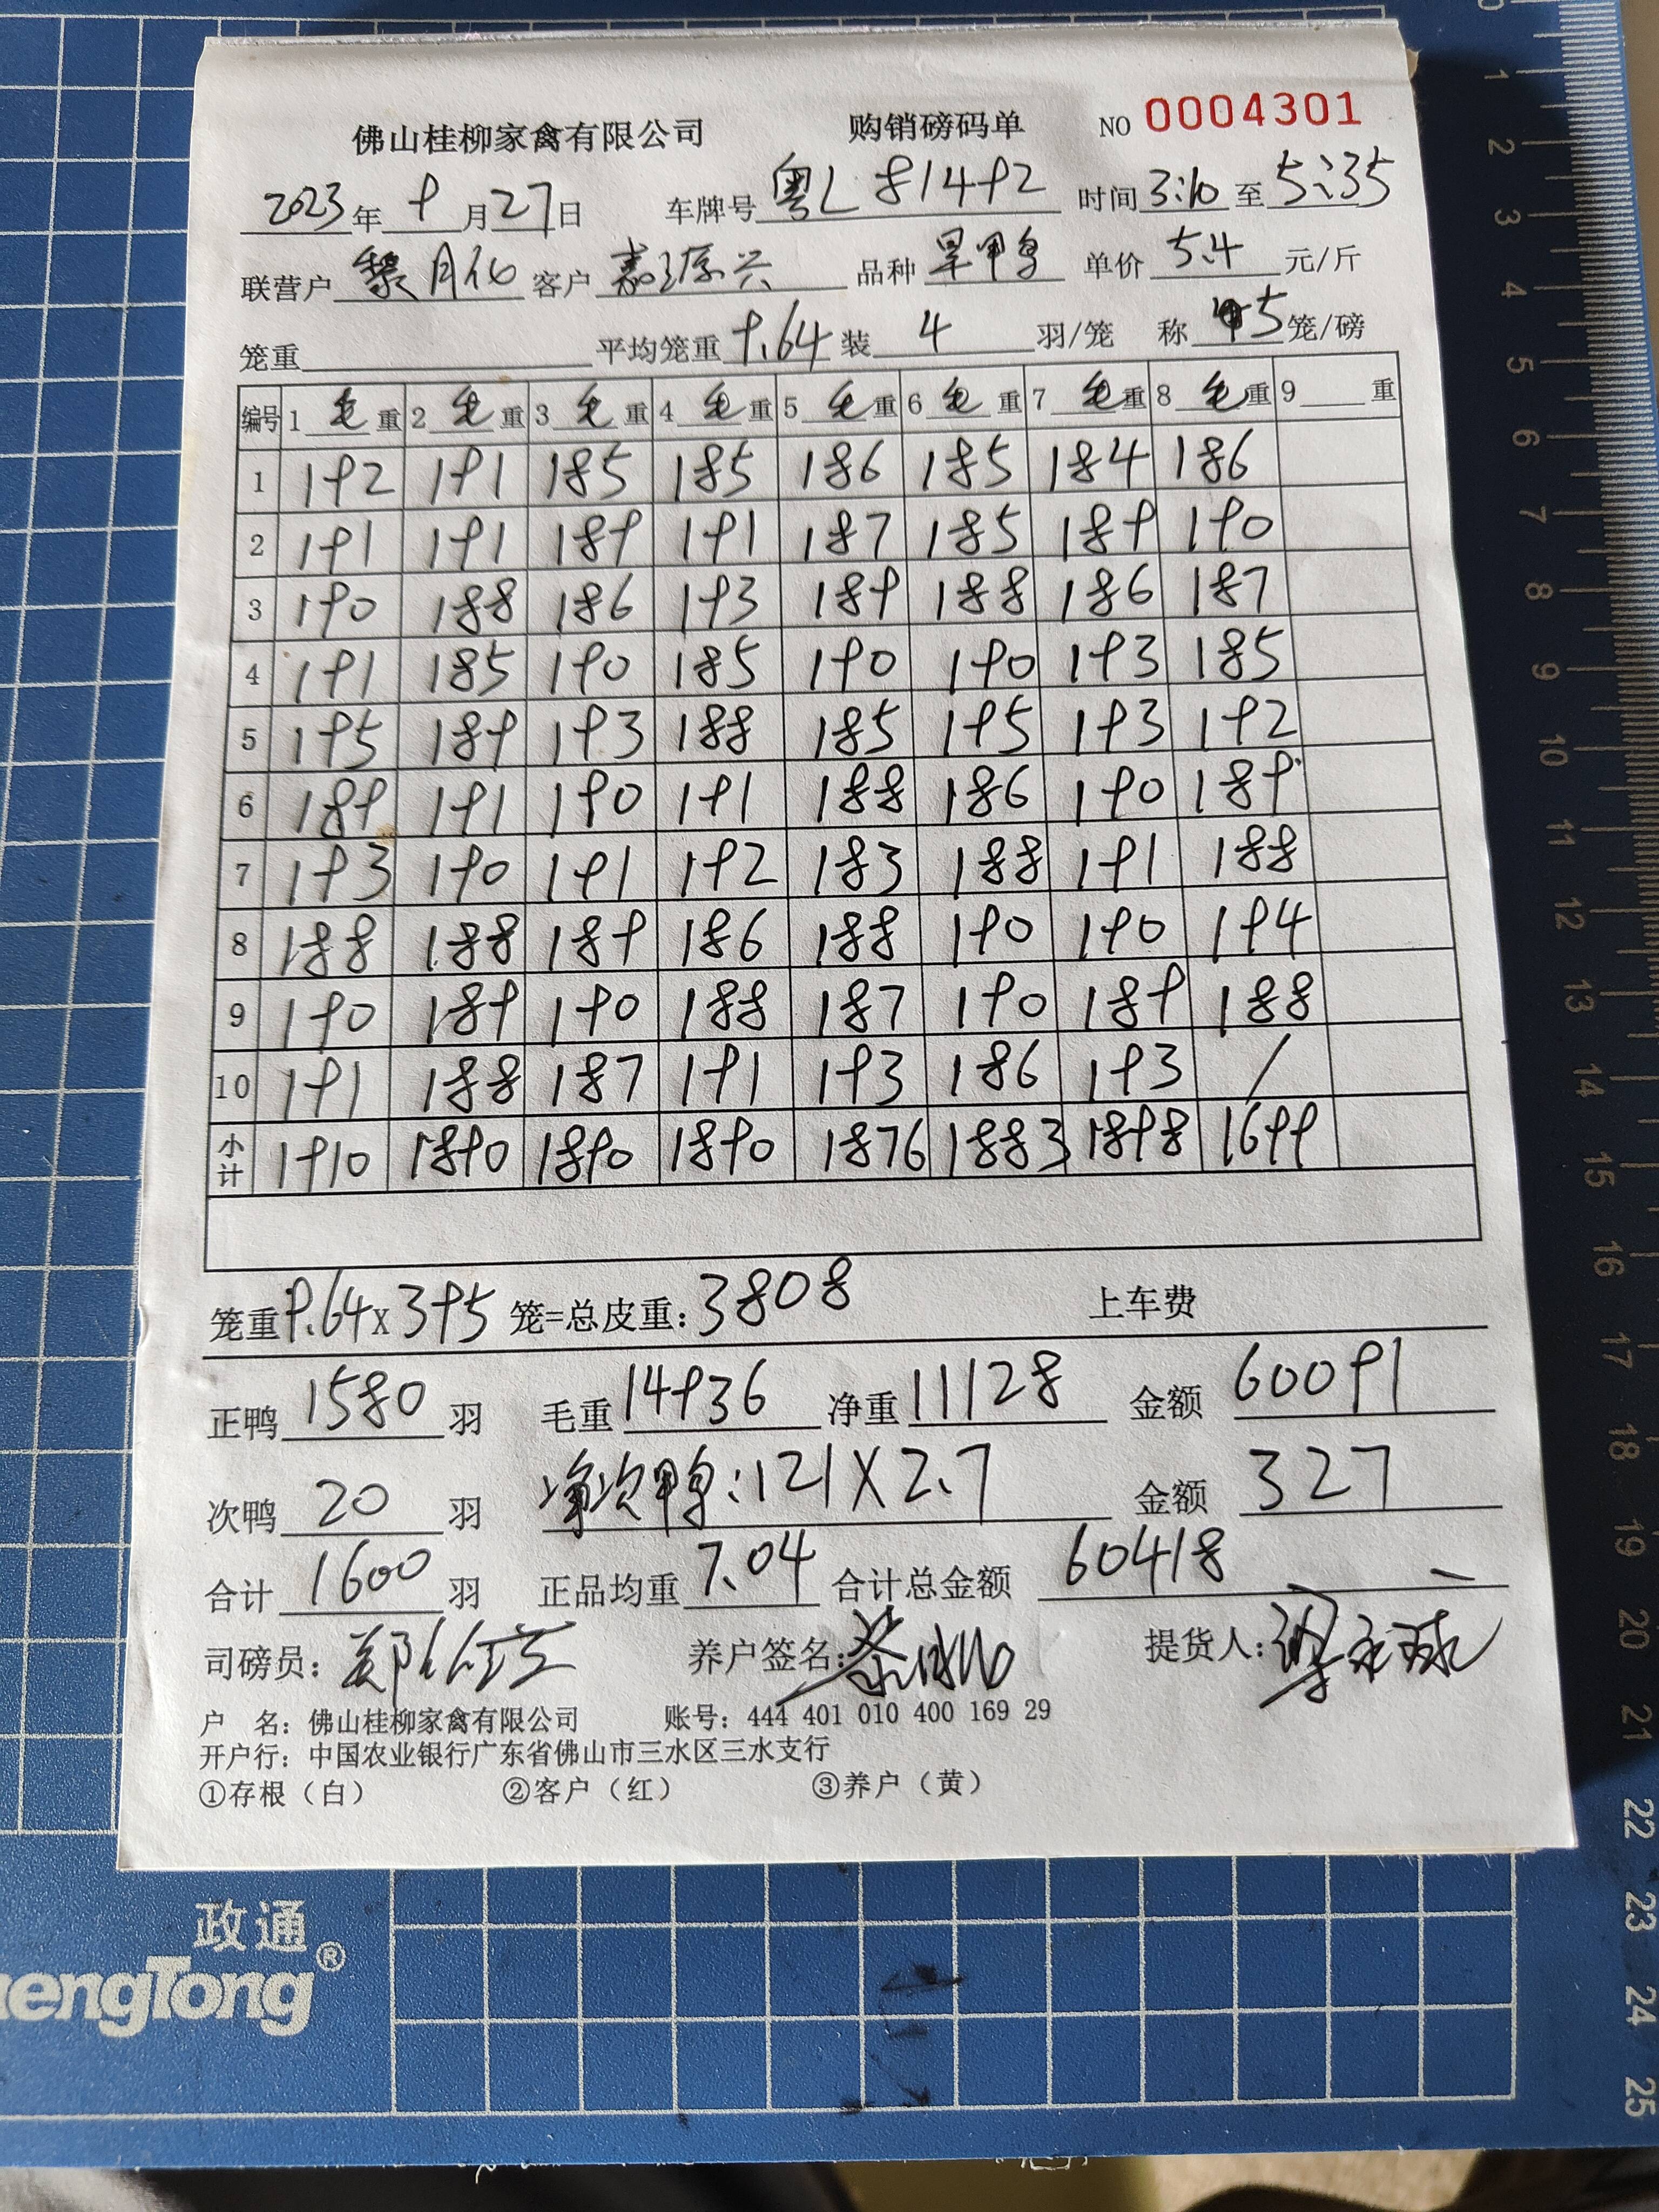 佛山桂柳家禽有限公司 购销磅码单 NO 0004301
2023年 9月27日 车牌号 粤L 81492 时间 3:10 至 5:35
联营户 黎月化 客户 嘉源兴 品种 旱鸭 单价 5.4 元/斤
笼重 平均笼重 9.64 装 4 羽/笼 称 5 笼/磅
编号 1 毛 重 2 毛 重 3 毛 重 4 毛 重 5 毛 重 6 毛 重 7 毛 重 8 毛 重 9 重
1 192 191 185 185 186 185 184 186
2 191 191 189 191 187 185 189 190
3 190 188 186 193 189 188 186 187
4 191 185 190 185 190 190 193 185
5 195 189 193 188 185 195 193 192
6 189 191 190 191 188 186 190 189
7 193 190 191 192 183 188 191 188
8 188 188 189 186 188 190 190 194
9 190 189 190 188 187 190 189 188
10 191 188 187 191 193 186 193 /
小计 1910 1890 1890 1890 1876 1883 1898 1699
笼重 9.64 x 395 笼=总皮重: 3808 上车费
正鸭 1580 羽 毛重 14936 净重 11128 金额 60091
次鸭 20 羽 净次鸭: 121 X 2.7 金额 327
合计 1600 羽 正品均重 7.04 合计总金额 60418
司磅员: 养户签名: 提货人:
户 名: 佛山桂柳家禽有限公司 账号: 444 401 010 400 169 29
开户行: 中国农业银行广东省佛山市三水区三水支行
①存根（白） ②客户（红） ③养户（黄）
政通®
hengTong
0
1
2
3
4
5
6
7
8
9
10
11
12
13
14
15
16
17
18
19
20
21
22
23
24
25